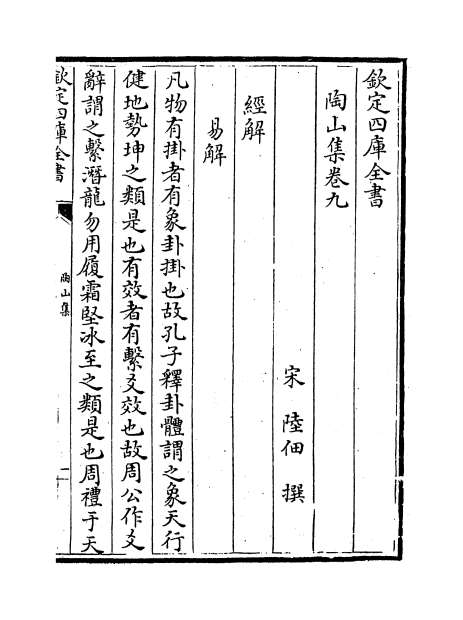 欽定四庫全書
陶山集卷九
宋 陸佃 撰
經解
易解
凡物有掛者有象卦掛也故孔子釋卦體謂之象天行
健地勢坤之類是也有效者有繫爻效也故周公作爻
辭謂之繫潛龍勿用履霜堅冰至之類是也周禮于天
欽定四庫全書
陶山集
一